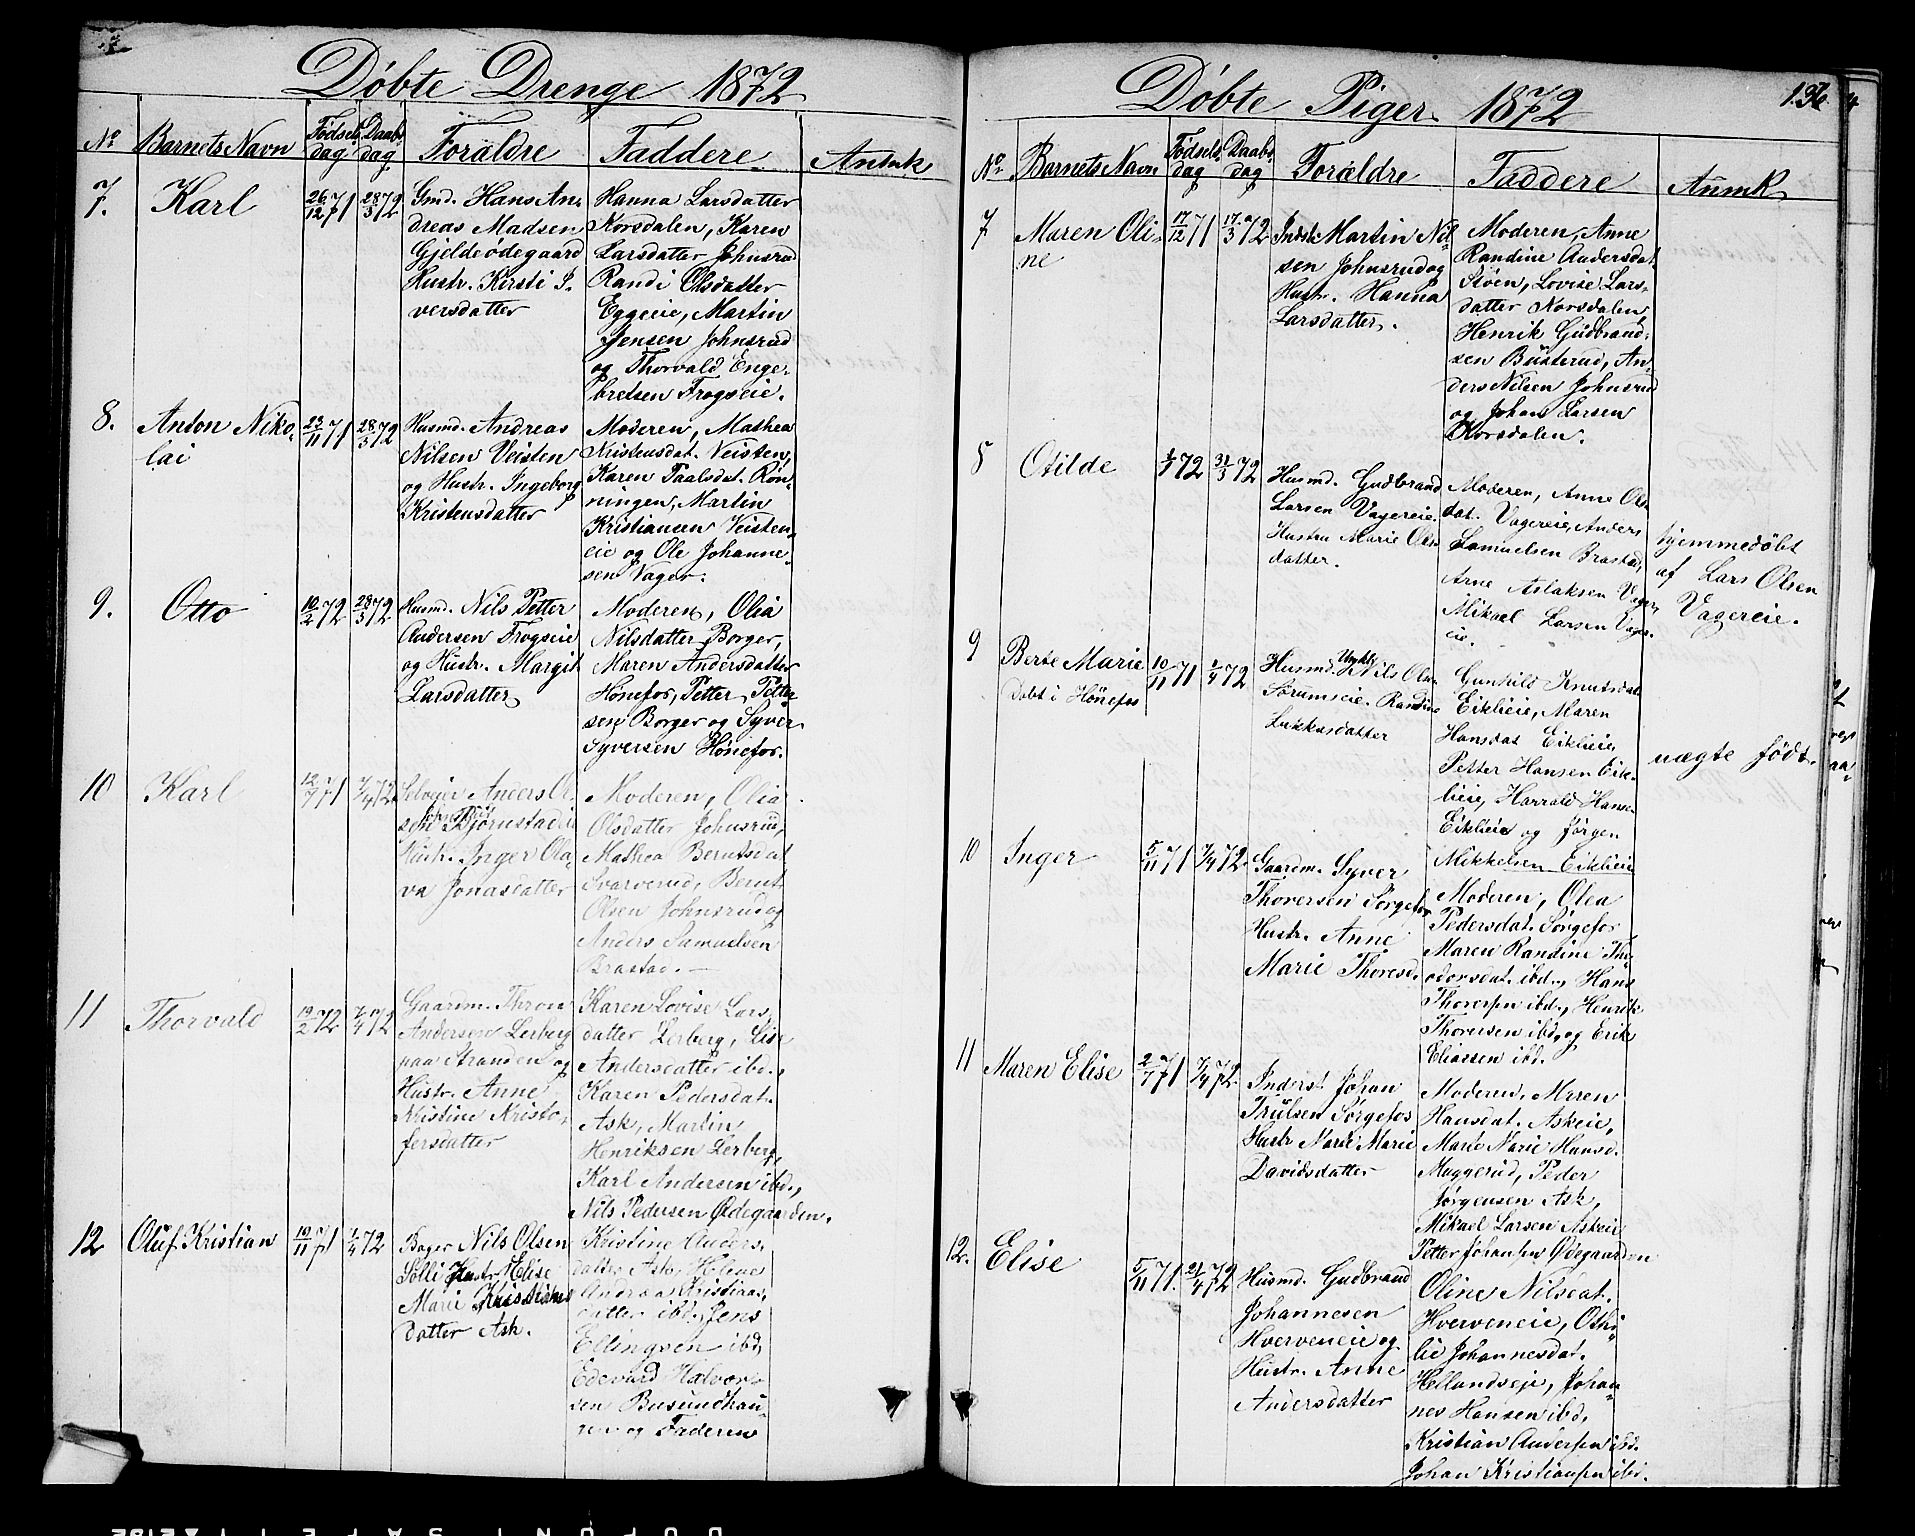 Døbte Drenge 1872
No Barnets Navn Fødsels dag Daabs dag Forældre Faddere Anmk
7. Karl 26/12 71 28/3 72
Gmd. Hans An-
dreas Madsen
Gjeldeødegaard
Hustr. Kirsti I-
versdatter
Hanna Larsdatter
Korsdalen, Karen
Larsdatter Johnsrud
Randi Olsdatter
Eggeeie, Martin
Jensen Johnsrud
og Thorvald Enge-
bretsen Frogseie.
8. Anton Niko-
lai
23/11 71 28/3 72
Husmd. Andreas
Nilsen Veisten
og Hustr. Ingeborg
Kristensdatter
Moderen, Mathea
Kristensdat. Veisten,
Karen Paalsdat. Røn-
ningen, Martin
Kristiansen Veisten-
eie og Ole Johanne-
sen Vager.
9. Otto 10/2 72 28/3 72
Husmd. Nils Petter
Andersen Frogseie
og Hustr. Margit
Larsdatter
Moderen, Olia
Nilsdatter Borger,
Maren Andersdatter
Hønefos, Petter Petter-
sen Borger og Syver
Syversen Hønefos.
10 Karl 12/7 71 7/4 72
Selveier Anders Ol-
sen Bjørnstadeie
Johnsrud
Hustr. Inger Ola-
va Jonasdatter
Moderen, Olia
Olsdatter Johnsrud,
Mathea Berntsdat
Svarverud, Bernt
Olsen Johnsrud og
Anders Samuelsen
Brastad. —
11 Thorvald 19/2 72 7/4 72
Gaardm. Thron
Andersen Lerberg
paa Stranden og
Hustr. Anne
Kristine Kristo-
fersdatter
Karen Lovise Lars-
datter Lerberg, Lise
Andersdatter ibd.,
Karen Pedersdat.
Ask, Martin
Henriksen Lerberg,
Karl Andersen ibd.,
Nils Pedersen Ødegaarden.
12 Oluf Kristian 19/11 71 7/4 72
Bager Nils Olsen
Solli Hustr. Elise
Marie Kristians
datter Ask.
Kristine Anders-
datter Ask, Helene
Andrea Kristians-
datter ibd. Jens
Ellingsen ibd,
Edevard Halvor-
sen Busundhau-
gen og Faderen
Døbte Piger. 1872
136
No. Barnets Navn Fødsels dag Daabs dag Forældre Faddere Anmk
7 Maren Oli-
ne
17/12 71 17/3 72
Indst. Martin Nil-
sen Johnsrud og
Hustr. Hanna
Larsdatter.
Moderen, Anne
Randine Andersdat.
Støen, Lovise Lars-
datter Korsdalen
Henrik Gudbrand-
sen Busterud, An-
ders Nilsen Johnsrud
og Johan Larsen
Korsdalen.
8 Otilde 1/1 72 31/3 72
Husmd. Gudbrand
Larsen Vagereie.
Hustru Marie Ols-
datter.
Moderen, Anne Ols-
dat. Vagereie, Anders
Samuelsen Brastad,
Arne Aslaksen Vager,
Mikael Larsen Vager-
eie.
hjemmedøbt
af Lars Olsen
Vagereie.
9 Berte Marie
Døbt i Hønefos
10/11 71 1/4 72
Husmd. Ungkl. Nils Ols-
Sørumseie. Randine
Lukkasdatter
Gunhild Knutsdat
Eiklieie, Maren
Hansdat Eiklieie,
Petter Hansen Eik-
lieie, Harrald Hans-
Eiklieie og Jørgen
Mikkelsen Eiklieie
uægte født.
10 Inger 5/11 71 7/4 72
Gaardm. Syver
Thoversen Sørgefos
Hustr. Anne
Marie Thoresd.
Moderen, Olea
Pedersdat. Sørgefos
Maren Randine Thi-
odorsdat. ibd., Hans
Thoversen ibd., Henrik
Thoversen ibd, og Erik
Eliassen ibd.
11 Maren Elise 2/7 71 7/4 72
Inderst Johan
Trulsen Sørgefos
Hustr Marie Marie
Davidsdatter
Moderen, Maren
Hansdat. Askeie,
Marte Marie Hansd.
Muggerud, Peder
Jørgensen Ask,
Mikael Larsen Askeie
Petter Johansen Ødegaarden
12. Elise 5/11 71. 21/4 72
Husmd. Gudbrand
Johannesen
Hverveneie og
Hustr. Anne
Andersdatter
Oline Nilsdat.
Hverveneie, Othi-
lie Johannesdat.
Hellandseje, Johan-
nes Hansen ibd,
Kristian Andersen ibd.
Johan Kristiansen ibd.